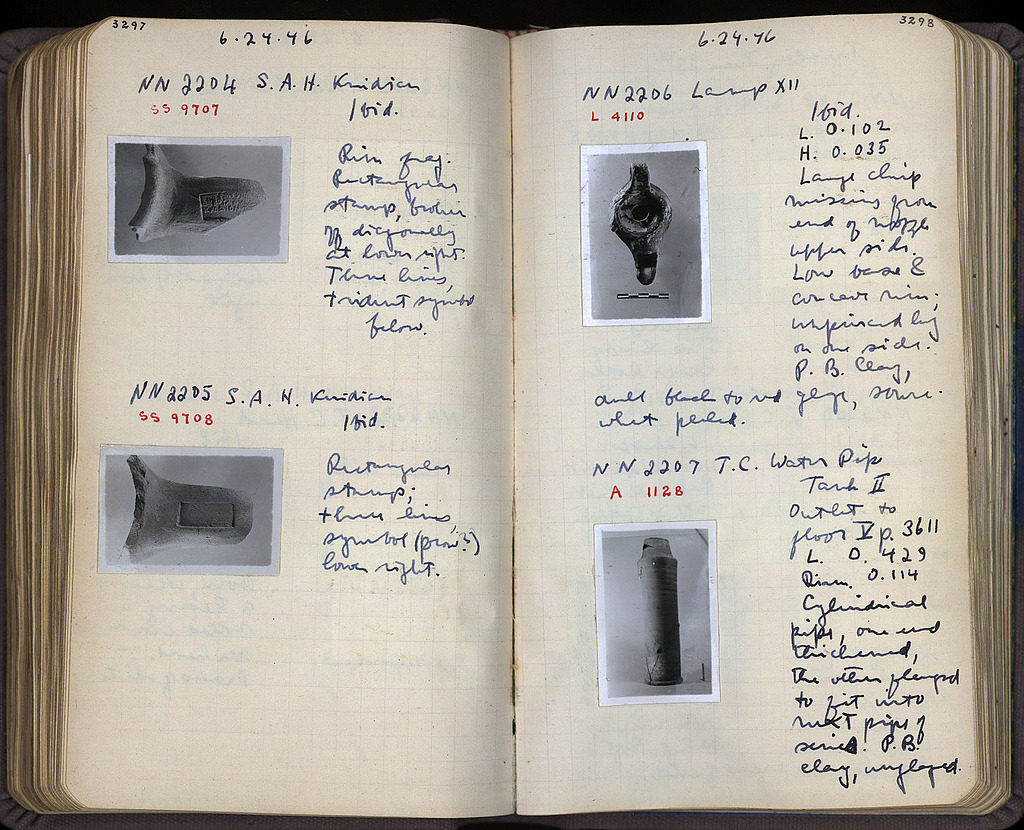 3297
6·24·46
NN 2204 S.A.H. Knidian
SS 9707
Ibid.
Rim frag.
Rectangular
stamp, broken
off diagonally
at lower right.
Three lines,
trident symbol
below.
NN2205 S.A.H. Knidian
SS 9708
Ibid.
Rectangular
stamp;
three lines,
symbol (prow?)
lower right.
3298
6·24·46
NN2206 Lamp XII
L 4110
Ibid.
L. 0.102
H. 0.035
Large chip
missing from
end of nozzle
upper side.
Low base &
concave rim;
unpierced lug
on one side.
P. B. Clay,
dull black to red glaze, some-
what peeled.
NN 2207 T.C. Water Pipe
A 1128
Tank II
Outlet to
floor V p. 3611
L. 0.429
Diam. 0.114
Cylindrical
pipe, one end
thickened,
the other flanged
to fit into
next pipe of
series. P.B.
clay, unglazed.